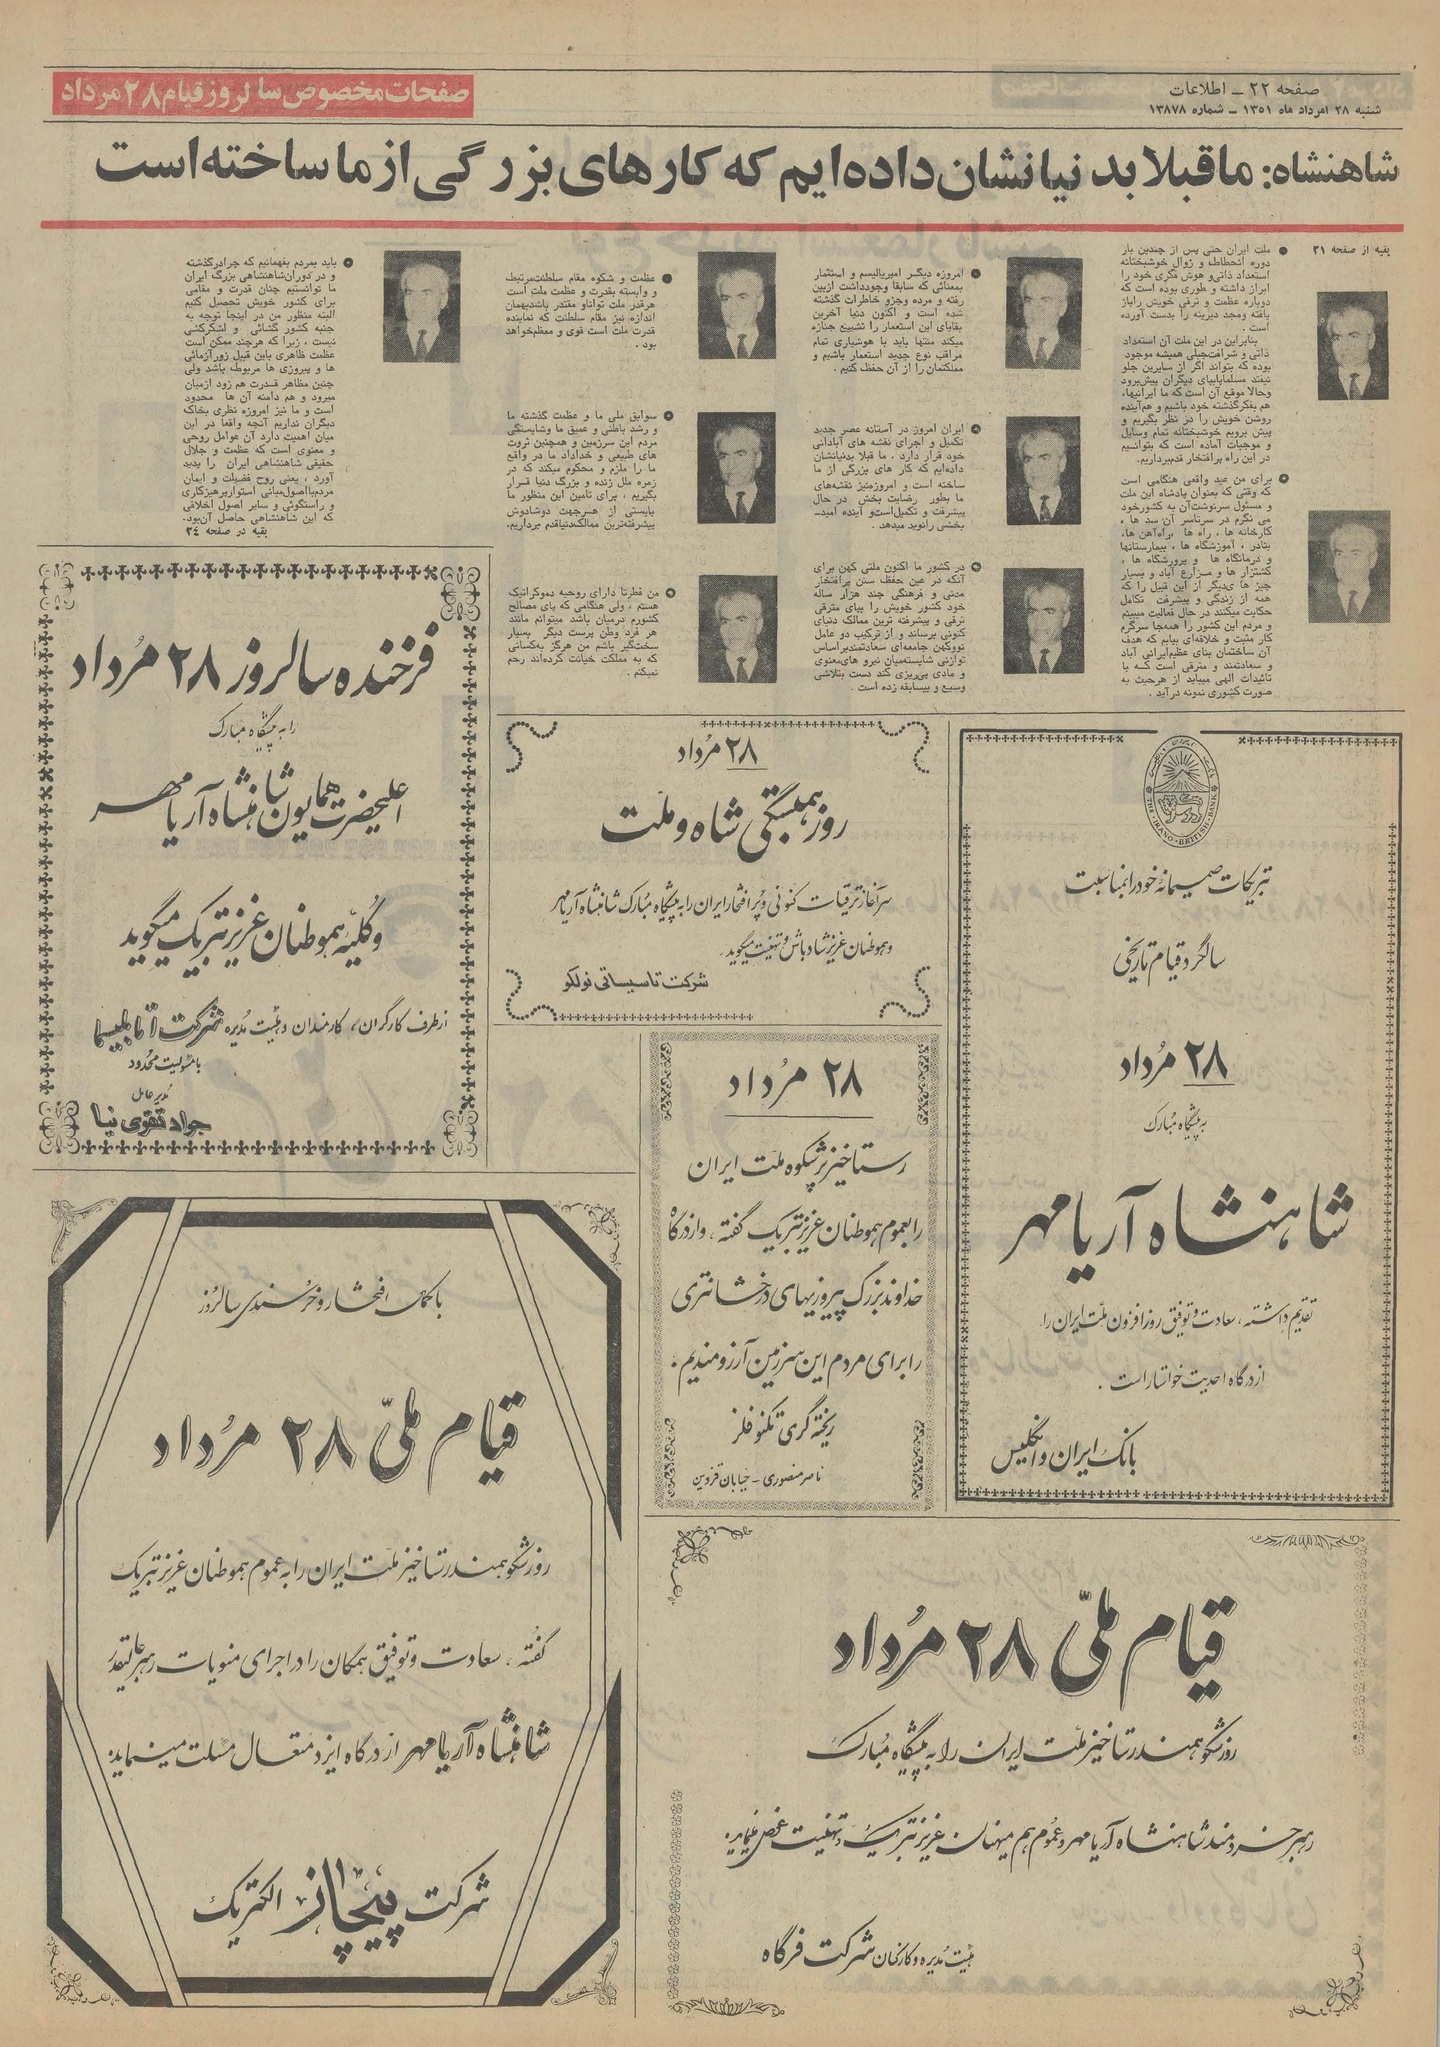 صفحه ۲۲ ـ اطلاعات
شنبه ۲۸ امرداد ماه ۱۳۵۱ ـ شماره ۱۳۸۷۸
صفحات مخصوص سالروز قیام ۲۸ مرداد
شاهنشاه: ما قبلا بدنیا نشان داده‌ایم که کارهای بزرگی از ما ساخته است
بقیه از صفحه ۲۱
ملت ایران حتی پس از چندین بار
دوره انحطاط و زوال خوشبختانه
استعداد ذاتی و هوش فکری خود را
ابراز داشته و طوری بوده است که
دوباره عظمت و ترقی خویش را باز
یافته و مجد دیرینه را بدست آورده
است .
بنابراین در این ملت آن استعداد
ذاتی و شرافت جبلی همیشه موجود
بوده که بتواند اگر از سایرین جلو
نیفتد مسلما بپای دیگران پیش برود
وحالا موقع آن است که ما ایرانیها،
هم بفکر گذشته خود باشیم و هم آینده
روشن خویش را در نظر بگیریم و
پیش برویم خوشبختانه تمام وسایل
و موجبات آماده است که بتوانیم
در این راه پرافتخار قدم برداریم.
برای من عید واقعی هنگامی است
که وقتی که بعنوان پادشاه این ملت
و مسئول سرنوشت آن به کشور خود
می نگرم در سرتاسر آن سد ها ،
کارخانه ها ، راه ها ، راه آهن ها،
بنادر ، آموزشگاه ها ، بیمارستانها
و درمانگاه ها و پرورشگاه ها ،
کشتزار ها و مزارع آباد و بسیار
چیز های دیگر از این قبیل را که
همه از زندگی و پیشرفت تکامل
حکایت میکنند در حال فعالیت میبینم
و مردم این کشور را همه جا سرگرم
کار مثبت و خلاقه‌ای بیابم که هدف
آن ساختمان بنای عظیم ایرانی آباد
و سعادتمند و مترقی است که با
تائیدات الهی میباید از هر حیث به
صورت کشوری نمونه در آید .
امروزه دیگر امپریالیسم و استثمار
بمعنائی که سابقا وجود داشت از بین
رفته و مرده و جزو خاطرات گذشته
شده است و اکنون دنیا آخرین
بقایای این استعمار را تشییع جنازه
میکند منتها باید با هوشیاری تمام
مراقب نوع جدید استعمار باشیم و
مملکتمان را از آن حفظ کنیم .
ایران امروز در آستانه عصر جدید
تکمیل و اجرای نقشه های آبادانی
خود قرار دارد . ما قبلا بدنیا نشان
داده‌ایم که کار های بزرگی از ما
ساخته است و امروزه نیز نقشه‌های
ما بطور رضایت بخش در حال
پیشرفت و تکمیل است و آینده امید-
بخشی را نوید میدهد .
در کشور ما اکنون ملتی کهن برای
آنکه در عین حفظ سنن پرافتخار
مدنی و فرهنگی چند هزار ساله
خود کشور خویش را بپای مترقی
ترقی و پیشرفته ترین ممالک دنیای
کنونی برساند و از ترکیب دو عامل
نو و کهن جامعه‌ای سعادتمند بر اساس
توازنی شایسته میان نیرو های معنوی
و مادی پی‌ریزی کند دست بتلاشی
وسیع و بیسابقه زده است .
عظمت و شکوه مقام سلطنت مرتبط
و وابسته بقدرت و عظمت ملت است
هر قدر ملت توانا و مقتدر باشد بهمان
اندازه نیز مقام سلطنت که نماینده
قدرت ملت است قوی و معظم خواهد
بود .
سوابق ملی ما و عظمت گذشته ما
و رشد باطنی و عمیق ما و شایستگی
مردم این سرزمین و همچنین ثروت
های طبیعی و خداداد ما در واقع
ما را ملزم و محکوم میکند که در
زمره ملل زنده و بزرگ دنیا قرار
بگیریم ، برای تامین این منظور ما
بایستی از هر جهت دوشادوش
پیشرفته‌ترین ممالک دنیا قدم برداریم.
من فطرتا دارای روحیه دموکراتیک
هستم ، ولی هنگامی که پای مصالح
کشورم درمیان باشد میتوانم مانند
هر فرد وطن پرست دیگر بسیار
سختگیر باشم من هرگز به کسانی
که به مملکت خیانت کرده‌اند رحم
نمیکنم .
باید بمردم بفهمانیم که چرا درگذشته
و در دوران شاهنشاهی بزرگ ایران
ما توانستیم چنان قدرت و مقامی
برای کشور خویش تحصیل کنیم
البته منظور من در اینجا توجه به
جنبه کشور گشائی و لشگرکشی
نیست ، زیرا که هرچند ممکن است
عظمت ظاهری باین قبیل زورآزمائی
ها و پیروزی ها مربوط باشد ولی
چنین مظاهر قدرت هم زود ازمیان
میرود و هم دامنه آن ها محدود
است و ما نیز امروزه نظری بخاک
دیگران نداریم آنچه واقعا در این
میان اهمیت دارد آن عوامل روحی
و معنوی است که عظمت و جلال
حقیقی شاهنشاهی ایران را پدید
آورد ، یعنی روح فضیلت و ایمان
مردم با اصول مبانی استوار پرهیزکاری
و راستگوئی و سایر اصول اخلاقی
که این شاهنشاهی حاصل آن بود.
بقیه در صفحه ۲۴
فرخنده سالروز ۲۸ مُرداد
را به پیشگاه مبارک
اعلیحضرت همایون شاهنشاه آریامهر
و کُلیّه هموطنان عزیز تبریک میگوید
از طرف کارگران، کارمندان و هیئت مدیره شرکت آتمابلیسما
با مسئولیت محدود
مدیر عامل
جواد تقوی نیا
۲۸ مُرداد
روز همبستگی شاه و ملّت
سرآغاز ترقیات کنونی و پُر افتخار ایران را به پیشگاه مُبارک شاهنشاه آریامهر
و هموطنان عزیز شادباش و تهنیت میگوید.
شرکت تاسیساتی نولکو
THE IRANO-BRITISH BANK
تبریکات صمیمانه خود را بمناسبت
سالگرد قیام تاریخی
۲۸ مُرداد
به پیشگاه مُبارک
شاهنشاه آریامهر
تقدیم داشته، سعادت و توفیق روز افزون ملّت ایران را
از درگاه احدیت خواستار است .
بانک ایران و انگلیس
۲۸ مُرداد
رستاخیز پرشکوه ملّت ایران
را بعموم هموطنان عزیز تبریک گفته ، و از درگاه
خداوند بزرگ پیروزیهای درخشانتری
را برای مردم این سرزمین آرزومندیم .
ریخته گری تکنو فلز
ناصر منصوری - خیابان قزوین
با کمال افتخار و خرسندی سالروز
قیام ملّی ۲۸ مُرداد
روز شکوهمند رستاخیز ملّت ایران را به عموم هموطنان عزیز تبریک
گفته ، سعادت و توفیق همگان را در اجرای منویات رهبر عالیقدر
شاهنشاه آریامهر از درگاه ایزد متعال مسئلت مینماید:
شرکت پیچاز الکتریک
قیام ملّی ۲۸ مُرداد
روز شکوهمند رستاخیز ملّت ایران را به پیشگاه مُبارک
رهبر خردمند شاهنشاه آریامهر و عموم هم میهنان عزیز تبریک و تهنیت عرض مینماید.
هیئت مُدیره و کارکنان شرکت فرگاه